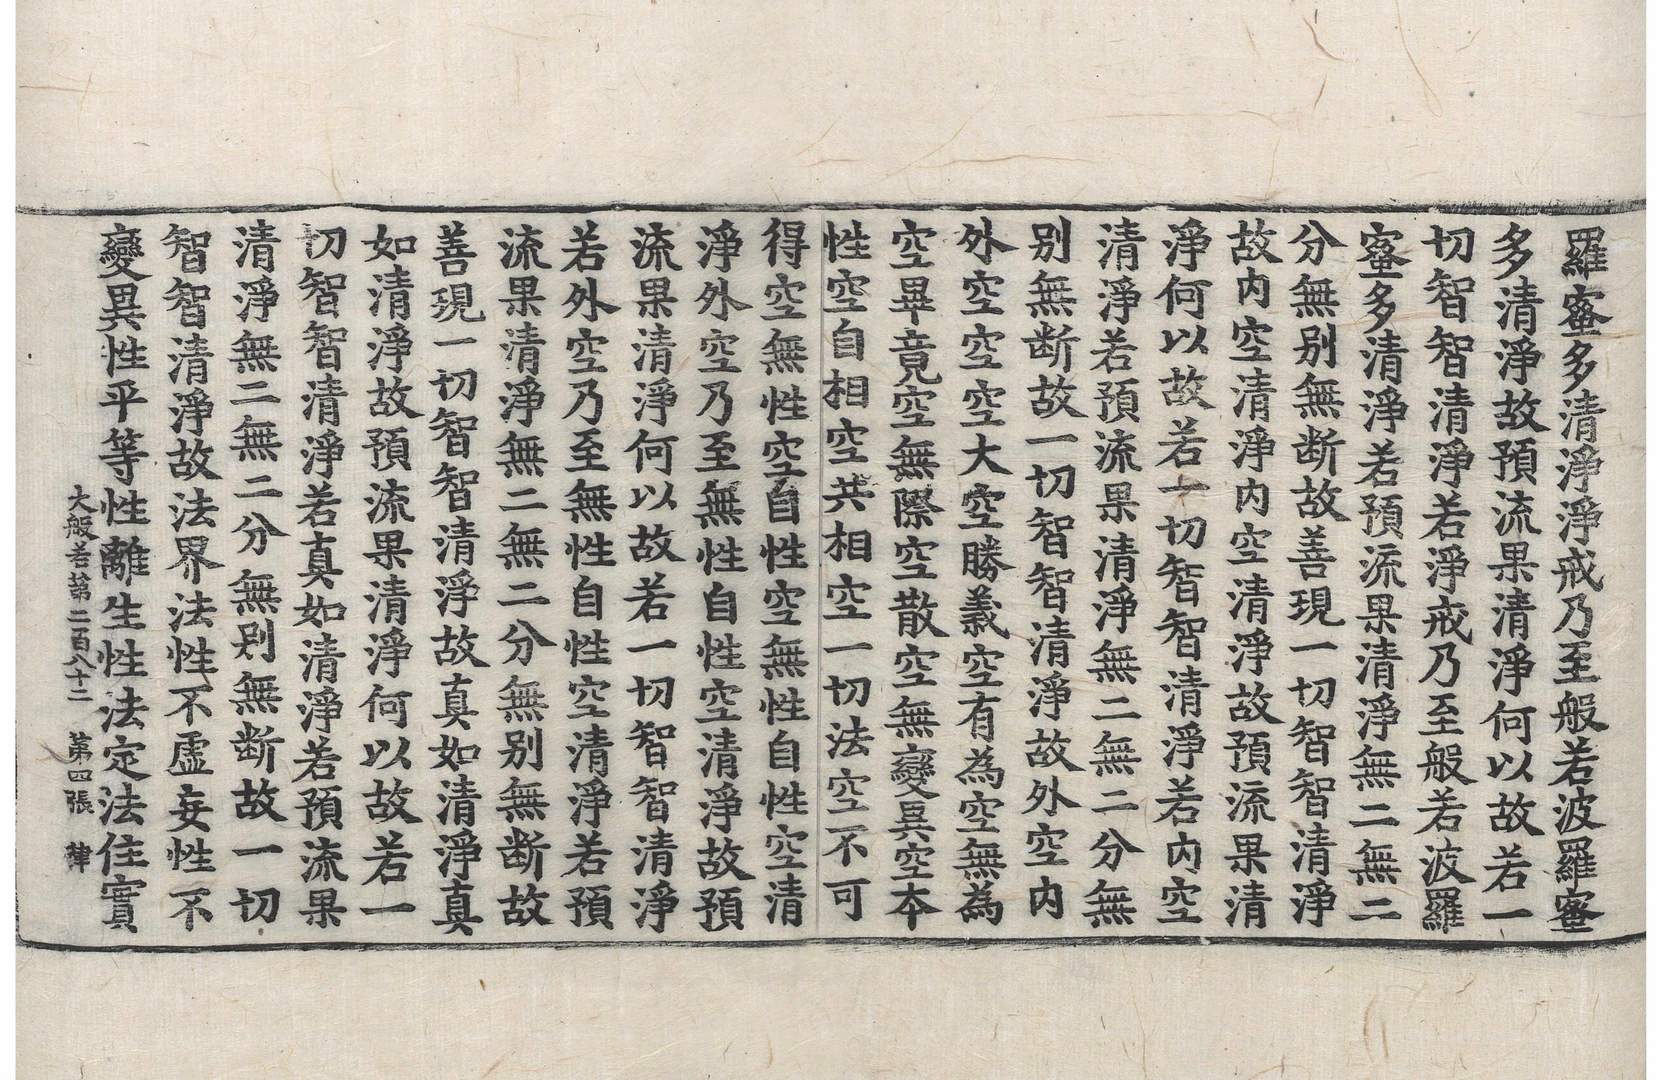 羅蜜多清淨淨戒乃至般若波羅蜜
多清淨故預流果清淨何以故若一
切智智清淨若淨戒乃至般若波羅
蜜多清淨若預流果清淨無二無二
分無別無断故善現一切智智清淨
故內空清淨內空清淨故預流果清
淨何以故若一切智智清淨若內空
清淨若預流果清淨無二無二分無
別無断故一切智智清淨故外空內
外空空空大空勝義空有為空無為
空畢竟空無際空散空無變異空本
性空自相空共相空一切法空不可
得空無性空自性空無性自性空清
淨外空乃至無性自性空清淨故預
流果清淨何以故若一切智智清淨
若外空乃至無性自性空清淨若預
流果清淨無二無二分無別無断故
善現一切智智清淨故真如清淨真
如清淨故預流果清淨何以故若一
切智智清淨若真如清淨若預流果
清淨無二無二分無別無断故一切
智智清淨故法界法性不虛妄性不
變異性平等性離生性法定法住實
大般若第二百八十二 第四張 律